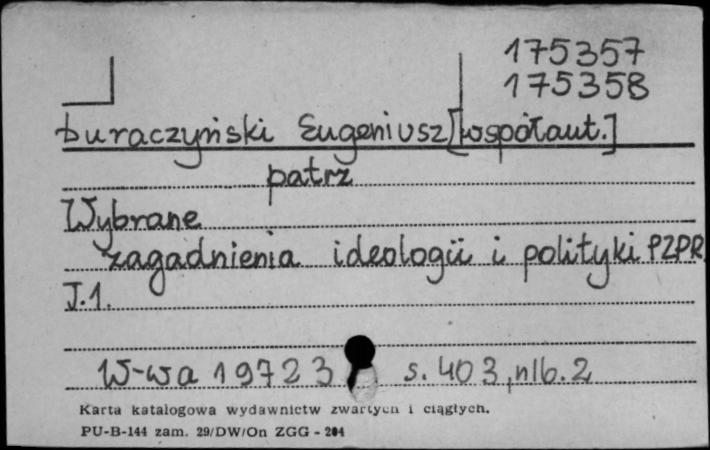 175357
175358
Duraczyński Eugeniusz [współaut.]
patrz
Wybrane
zagadnienia ideologii i polityki PZPR,
T.1.
W-wa 1972 s. 403, nlb. 2
Karta katalogowa wydawnictw zwartych i ciągłych.
PU-B-144 zam. 29/DW/On ZGG - 204